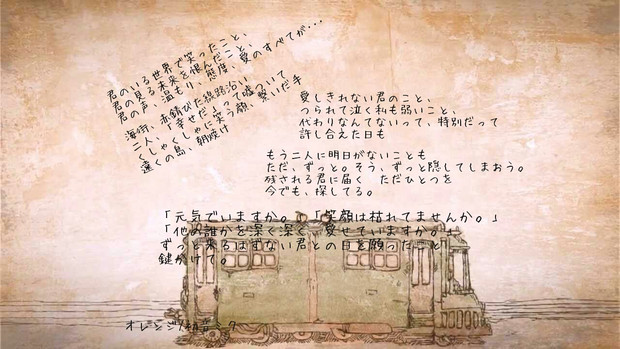 君のいる世界で笑ったこと、
君の見る未来を恨んだこと、
君の声、温もり、態度、愛のすべてが・・・
海街、赤錆びた線路沿い
二人、「幸せだ」って嘘ついて
くしゃくしゃに笑う顔、繋いだ手
遠くの島、朝焼け
愛しきれない君のこと、
つられて泣く私も弱いこと、
代わりなんてないって、特別だって
許し合えた日も
もう二人に明日がないことも
ただ、ずっと。そう、ずっと隠してしまおう。
残される君に届く ただひとつを
今でも、探してる。
「元気でいますか。」「笑顔は枯れてませんか。」
「他の誰かを深く深く、愛せていますか。」
ずっと来るはずない君との日を願ったこと
鍵かけて。
オレンジ/初音ミク